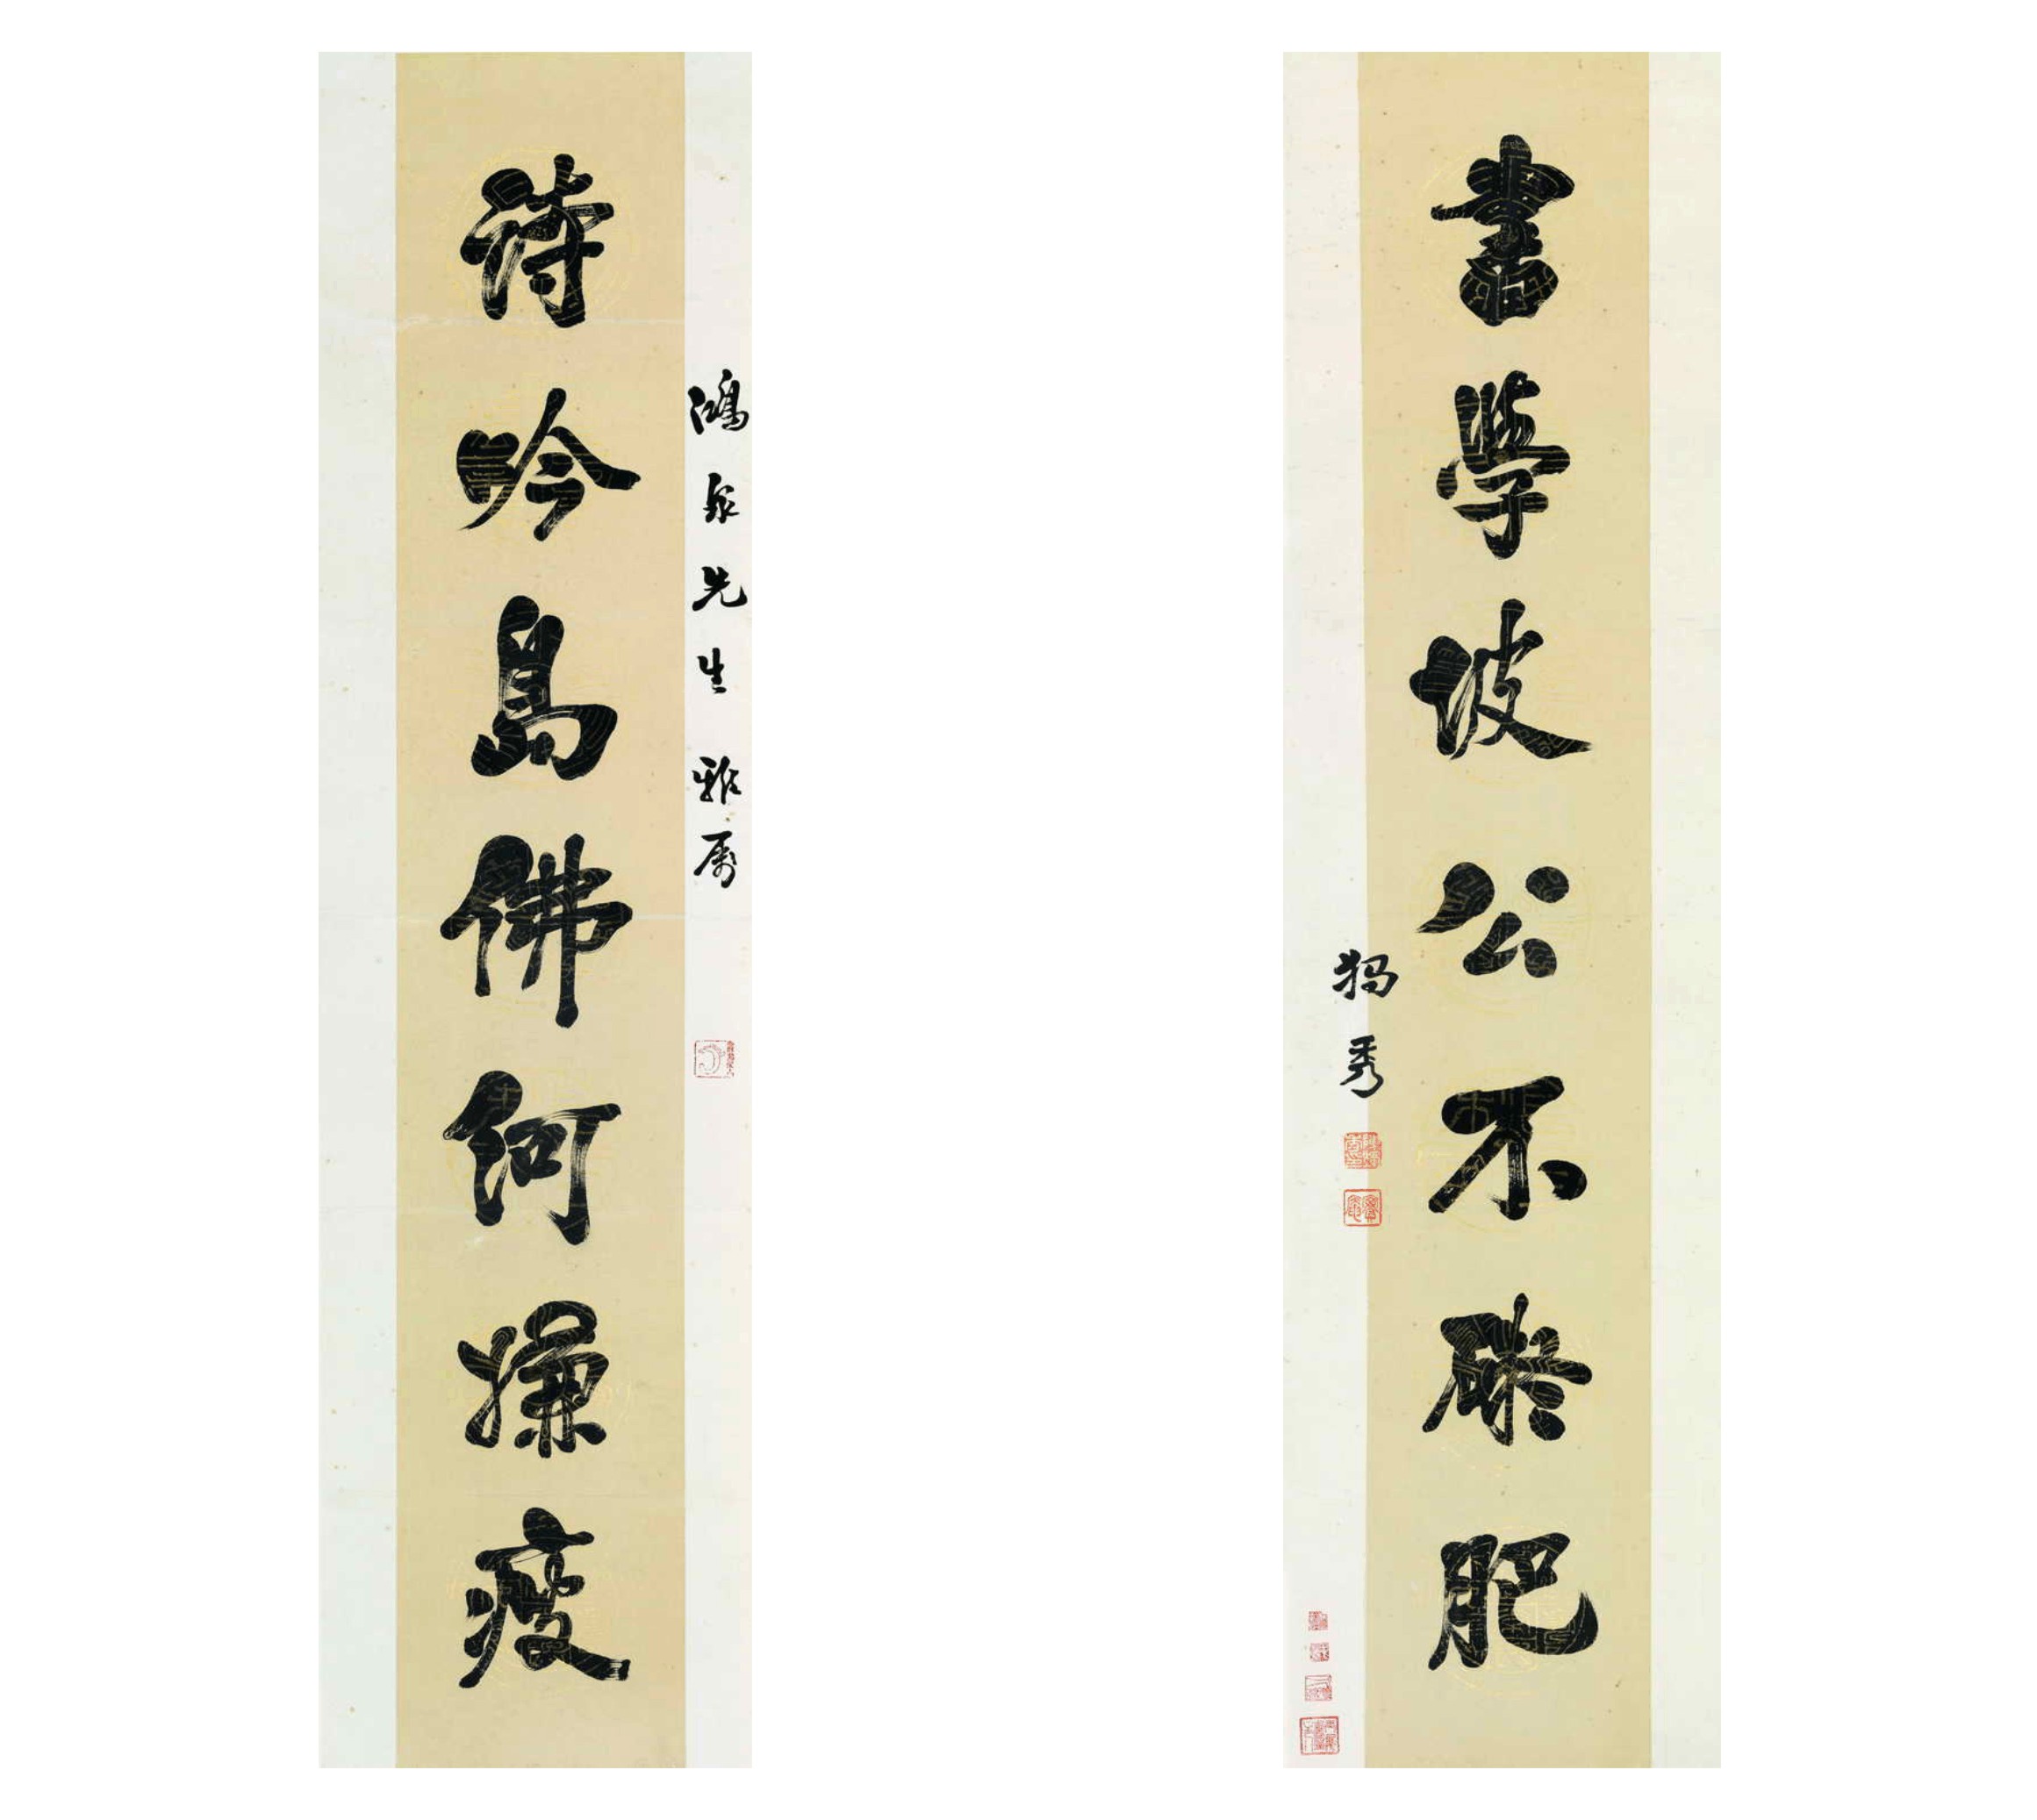 鴻泉先生雅屬
詩吟島佛何嫌瘦
書學坡公不礙肥
独秀